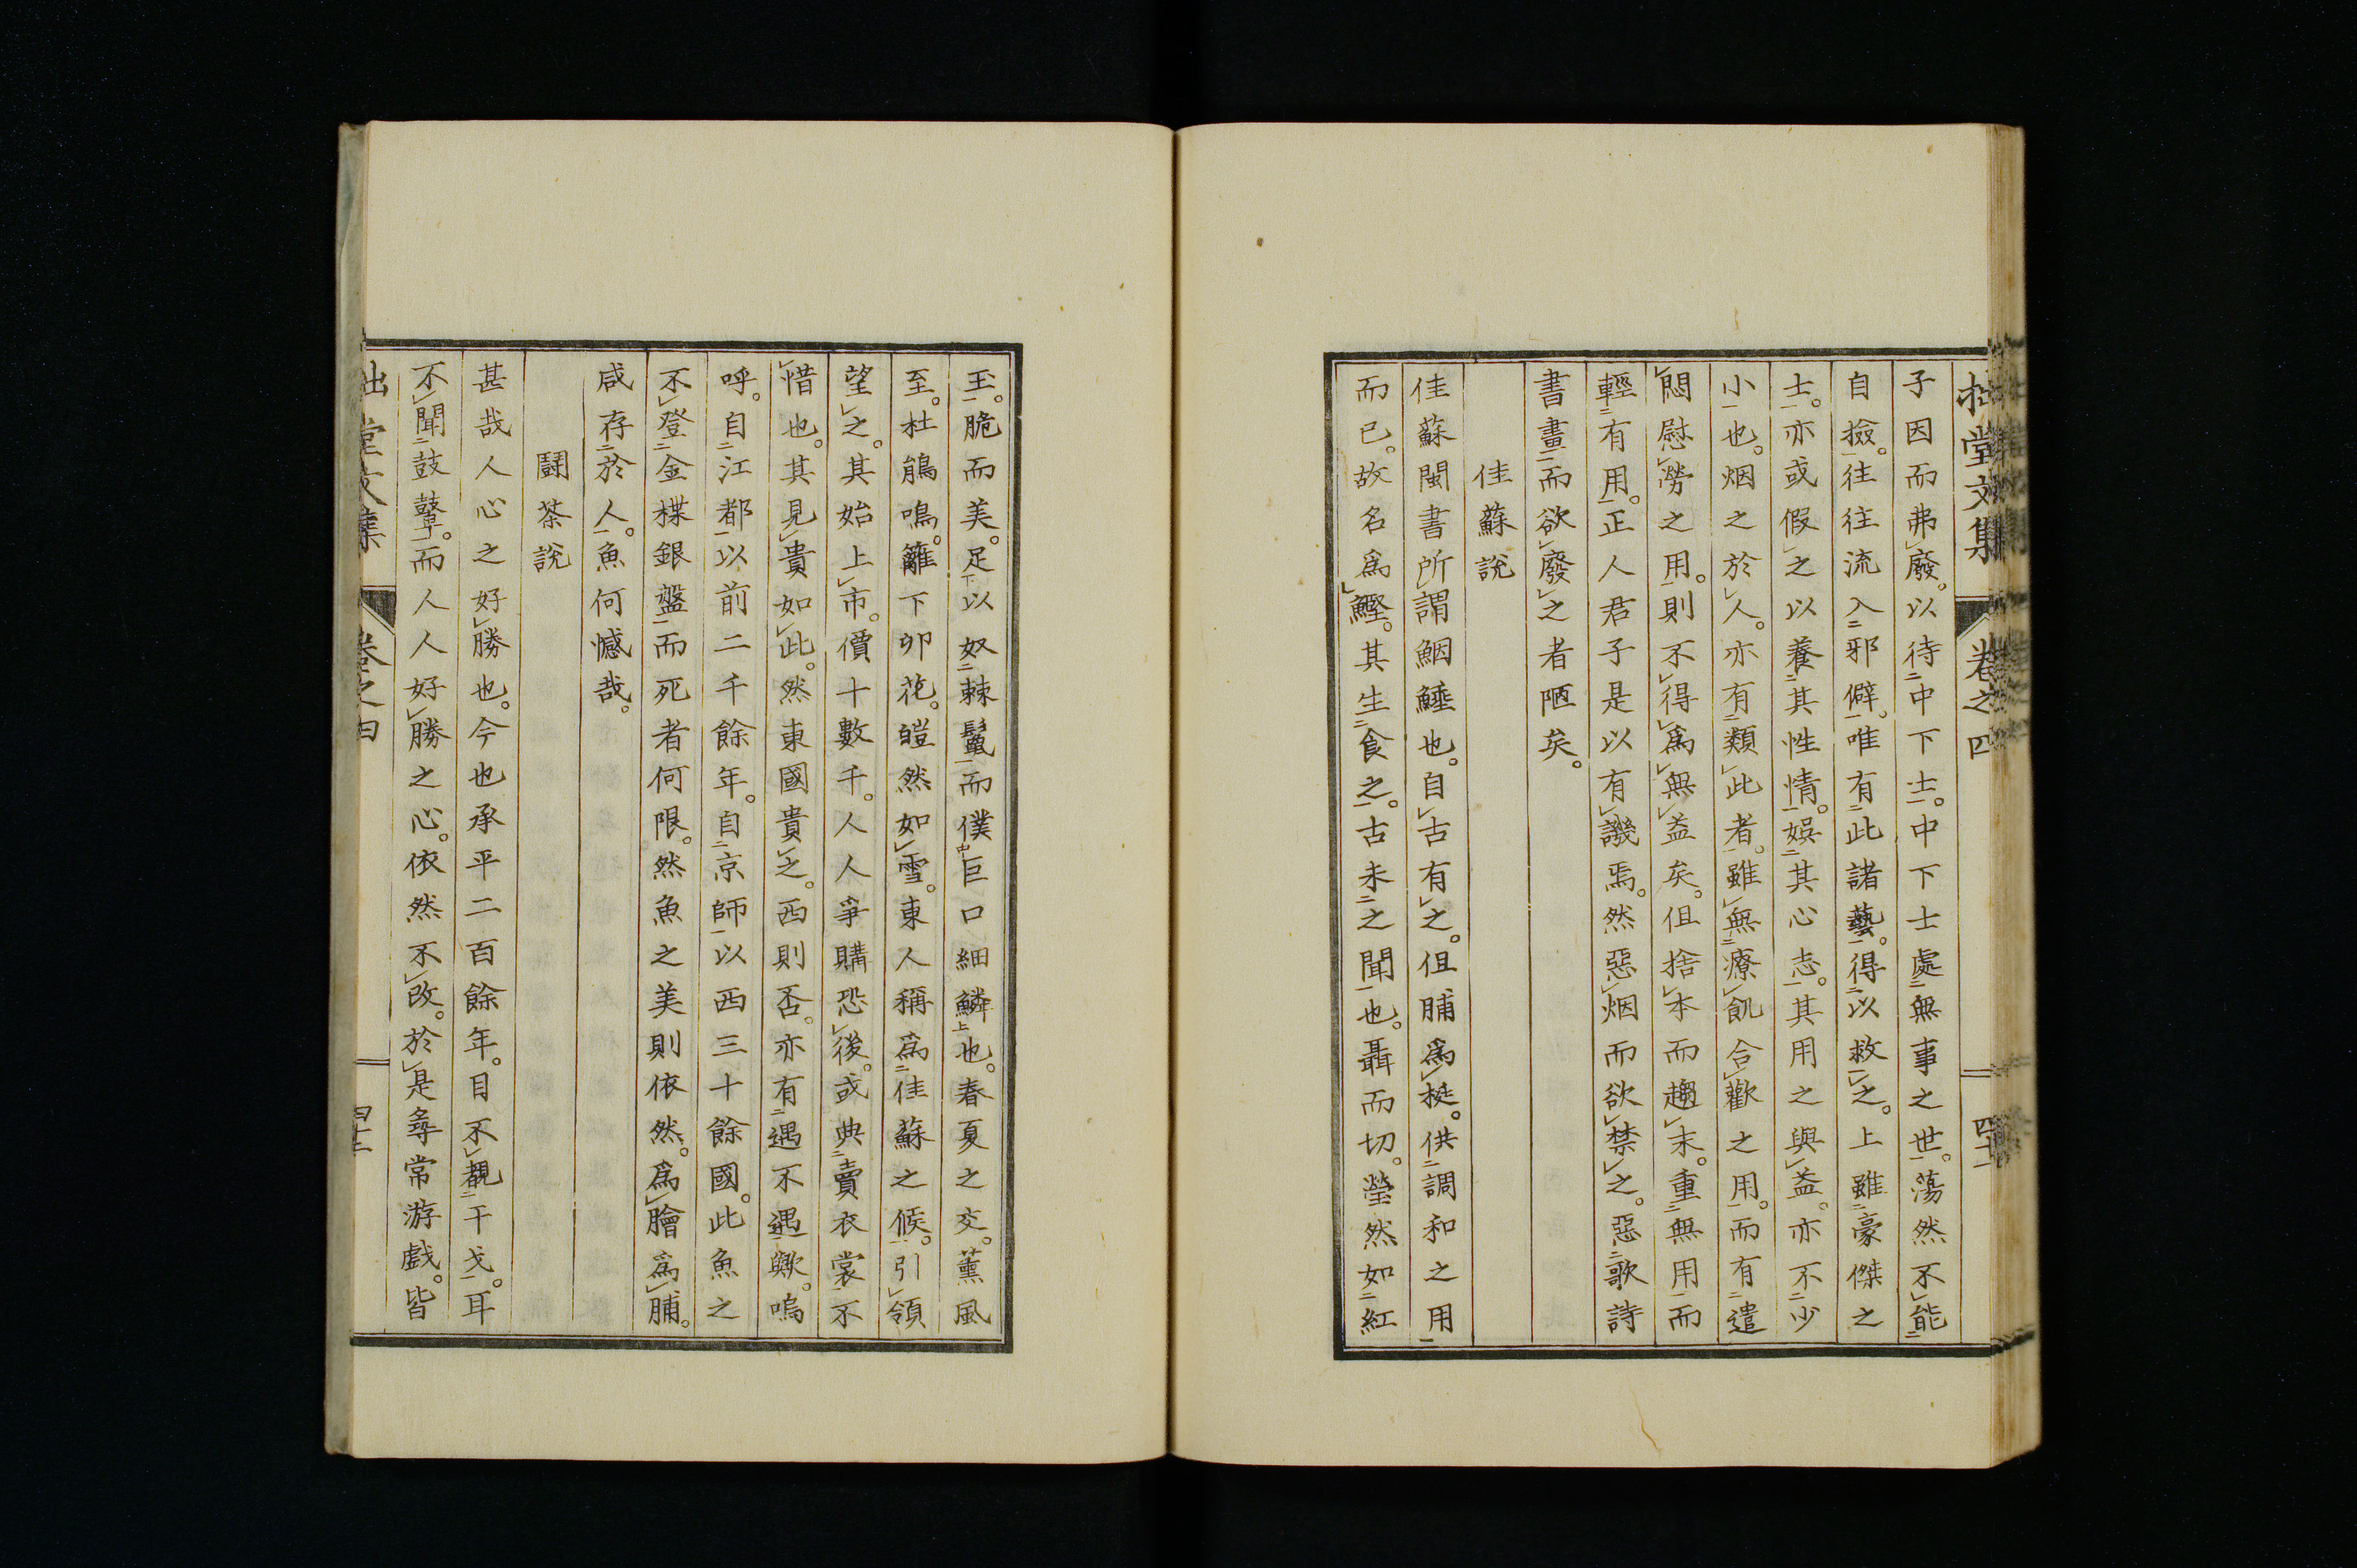 拙堂文集 卷之四 四十一
子因而弗廢。以待中下士。中下士處無事之世。蕩然不能
自撿。往往流入邪僻。唯有此諸藝。得以救之。上雖豪傑之
士。亦或假之以養其性情。娛其心志。其用之與益。亦不少
小也。烟之於人。亦有類此者。雖無療飢合歡之用。而有遣
悶慰勞之用。則不得爲無益矣。但捨本而趨末。重無用而
輕有用。正人君子是以有譏焉。然惡烟而欲禁之。惡歌詩
書畫而欲廢之者陋矣。
佳蘇說
佳蘇閩書所謂鮂鯉也。自古有之。但脯爲梃。供調和之用
而已。故名爲鰹。其生食之。古未之聞也。聶而切。瑩然如紅
玉。脆而美。足以奴棘鬣而僕巨口細鱗也。春夏之交。薰風
至。杜鵑鳴。籬下卯花。皚然如雪。東人稱爲佳蘇之候。引領
望之。其始上市。價十數千。人人爭購恐後。或典賣衣裳不
惜也。其見貴如此。然東國貴之。西則否。亦有遇不遇歟。嗚
呼。自江都以前二千餘年。自京師以西三十餘國。此魚之
不登金楪銀盤而死者何限。然魚之美則依然。爲膾爲脯。
咸存於人。魚何憾哉。
鬪茶說
甚哉人心之好勝也。今也承平二百餘年。目不覩干戈。耳
不聞鼓鼙。而人人好勝之心。依然不改。於是尋常游戲。皆
拙堂文集 卷之四